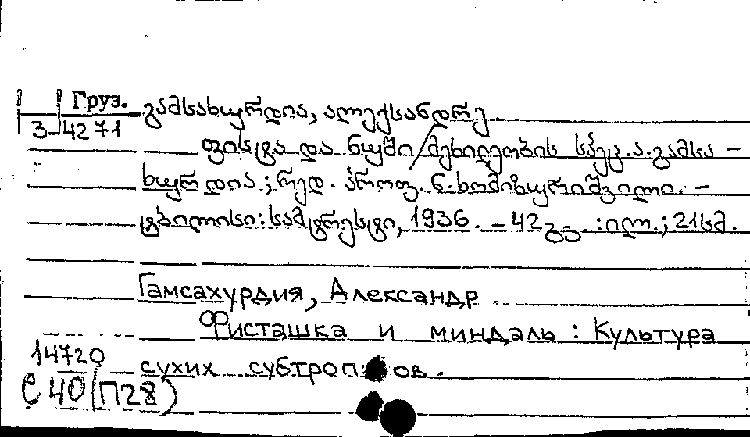 Груз.
3-4271
გამსახურდია, ალექსანდრე
ფისტა და ნუში / მეხილეობის სპეც. ა. გამსა-
ხურდია ; რედ. პროფ. ნ. ხომიზურიშვილი. -
ტბილისი : სამტრესტი, 1936. - 42 გვ. : ილ. ; 21 სმ.
Гамсахурдия, Александр
Фисташка и миндаль : Культура
сухих субтропиков.
14720
С 40 (П28)